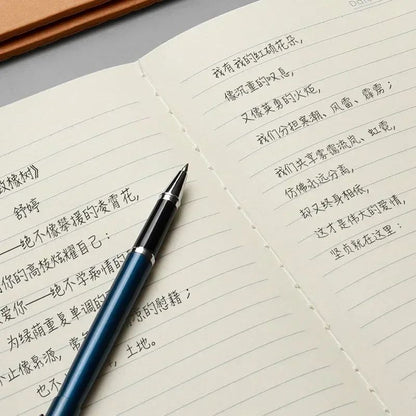 橡树》
舒婷
—绝不像攀援的凌霄花,
你的高枝炫耀自己:
爱你—绝不学痴情的
为绿荫重复单调的
止像泉源, 常 凉的慰籍;
也不 土地。
我有我的红硕花朵,
像沉重的叹息,
又像英勇的火炬,
我们分担寒潮、风雷、霹雳;
我们共享雾霭流岚、虹霓,
仿佛永远分离,
却又终身相依,
这才是伟大的爱情,
坚贞就在这里: